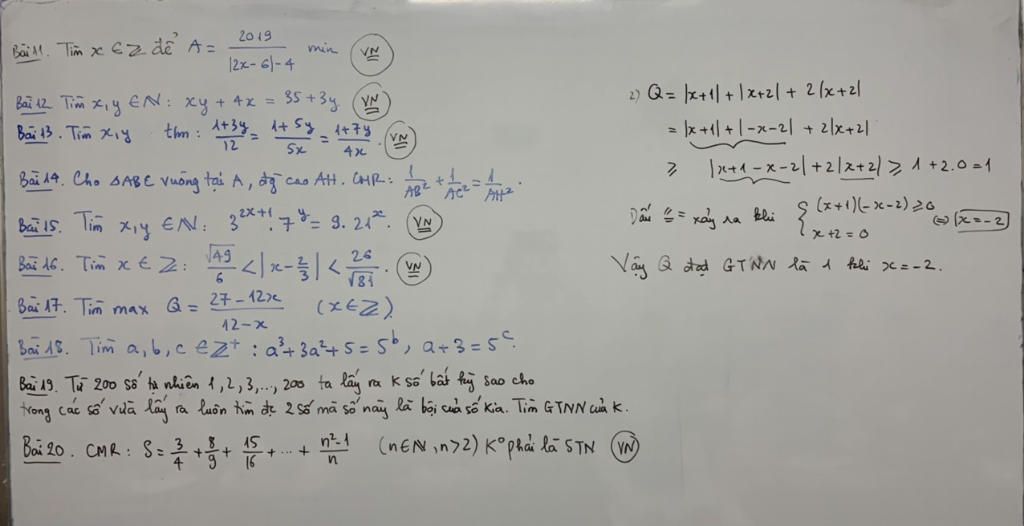 Bài 11. Tìm x ∈ Z để A = 2019 / (|2x-6|-4) min (VN)
Bài 12 Tìm x,y ∈ N: xy + 4x = 35+3y (VN)
Bài 13. Tìm x,y thm: (1+3y)/12 = (1+5y)/5x = (1+7y)/4x. (VN)
Bài 14. Cho ΔABC vuông tại A, đg cao AH. CMR: 1/AB² + 1/AC² = 1/AH².
Bài 15. Tìm x,y ∈ N: 3^(2x+1). 7^y = 9. 21^x. (VN)
Bài 16. Tìm x ∈ Z: √49/6 < |x - 2/3| < 26/√81. (VN)
Bài 17. Tìm max Q = (27-12x)/(12-x) (x∈Z)
Bài 18. Tìm a,b,c ∈ Z⁺: a³+3a²+5 = 5^b, a+3 = 5^c.
Bài 19. Từ 200 số tự nhiên 1,2,3,..., 200 ta lấy ra K số bất kỳ sao cho
trong các số vừa lấy ra luôn tìm đc 2 số mà số này là bội của số kia. Tìm GTNN của K.
Bài 20. CMR: S = 3/4 + 8/9 + 15/16 + ... + (n²-1)/n (n∈N, n>2) K° phải là STN (VN)
2) Q = |x+1| + |x+2| + 2|x+2|
= |x+1| + |-x-2| + 2|x+2|
≥ |x+1-x-2| + 2|x+2| ≥ 1 + 2.0 = 1
Dấu "=" xảy ra khi { (x+1)(-x-2) ≥ 0
x+2 = 0 ⇔ x = -2
Vậy Q đạt GTNN là 1 khi x = -2.